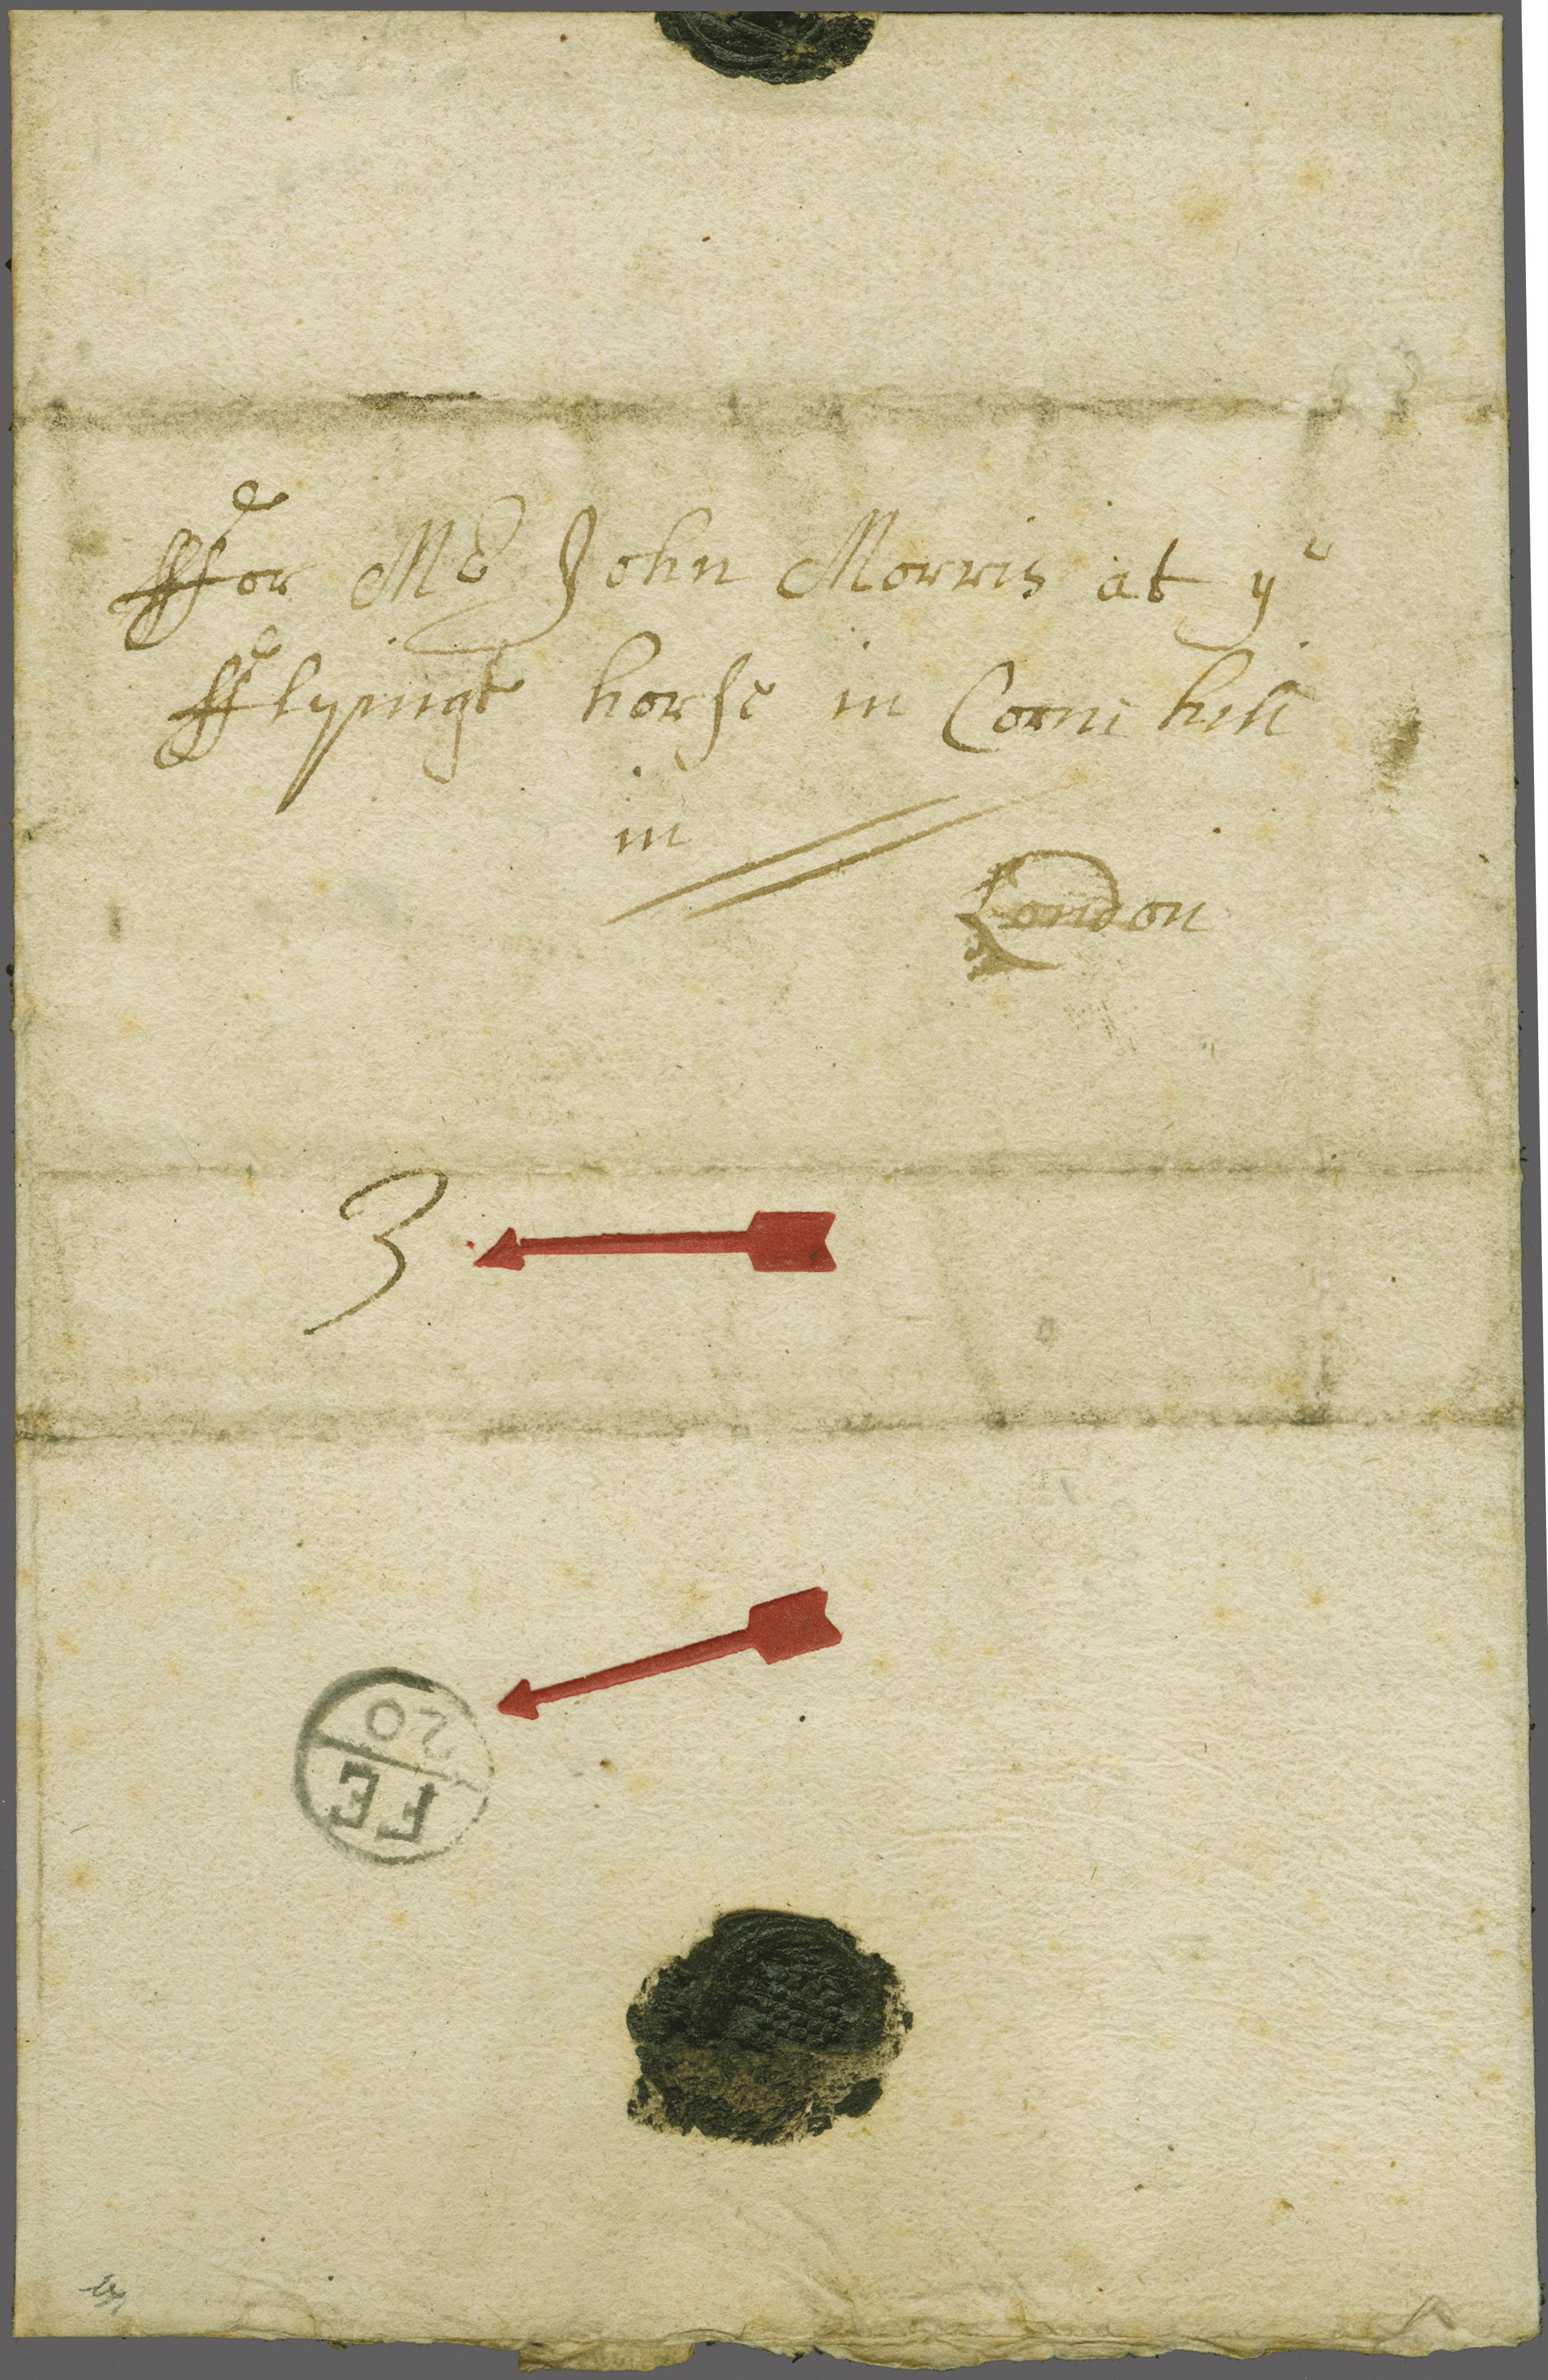 ffor Mr John Morris at ye
fflyinge horse in Corne hill
in
London
3
FE
20